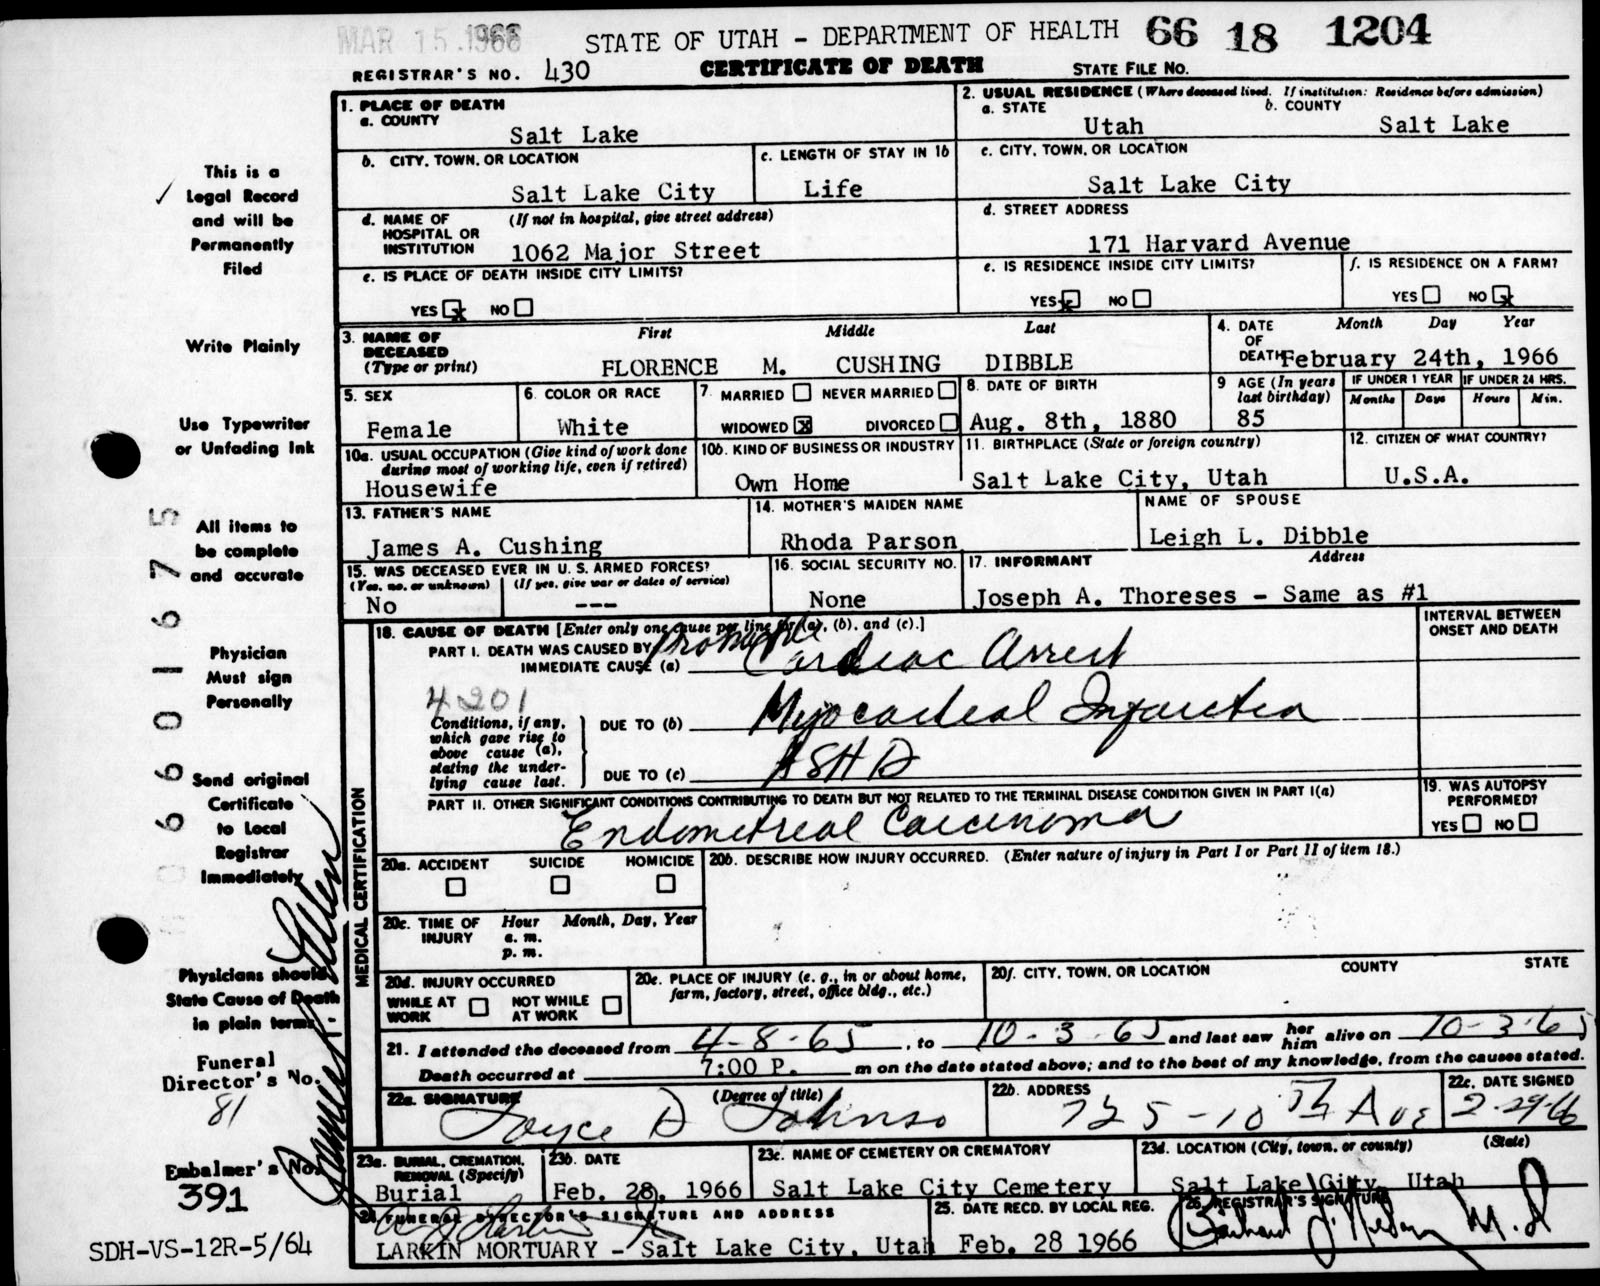 MAR 15 1966
STATE OF UTAH - DEPARTMENT OF HEALTH 66 18 1204
REGISTRAR'S NO. 430 CERTIFICATE OF DEATH STATE FILE NO.
1. PLACE OF DEATH
a. COUNTY
Salt Lake
2. USUAL RESIDENCE (Where deceased lived. If institution: Residence before admission)
a. STATE b. COUNTY
Utah Salt Lake
b. CITY, TOWN, OR LOCATION
Salt Lake City
c. LENGTH OF STAY IN 1b
Life
c. CITY, TOWN, OR LOCATION
Salt Lake City
d. NAME OF HOSPITAL OR INSTITUTION (If not in hospital, give street address)
1062 Major Street
d. STREET ADDRESS
171 Harvard Avenue
e. IS PLACE OF DEATH INSIDE CITY LIMITS?
YES x NO
e. IS RESIDENCE INSIDE CITY LIMITS?
YES x NO
f. IS RESIDENCE ON A FARM?
YES NO x
3. NAME OF DECEASED (Type or print) First Middle Last
FLORENCE M. CUSHING DIBBLE
4. DATE OF DEATH Month Day Year
February 24th, 1966
5. SEX
Female
6. COLOR OR RACE
White
7. MARRIED NEVER MARRIED
WIDOWED x DIVORCED
8. DATE OF BIRTH
Aug. 8th, 1880
9 AGE (In years last birthday)
85
IF UNDER 1 YEAR
Months Days
IF UNDER 24 HRS.
Hours Min.
10a. USUAL OCCUPATION (Give kind of work done during most of working life, even if retired)
Housewife
10b. KIND OF BUSINESS OR INDUSTRY
Own Home
11. BIRTHPLACE (State or foreign country)
Salt Lake City, Utah
12. CITIZEN OF WHAT COUNTRY?
U.S.A.
13. FATHER'S NAME
James A. Cushing
14. MOTHER'S MAIDEN NAME
Rhoda Parson
NAME OF SPOUSE
Leigh L. Dibble
15. WAS DECEASED EVER IN U.S. ARMED FORCES?
(Yes, no, or unknown) (If yes, give war or dates of service)
No ---
16. SOCIAL SECURITY NO.
None
17. INFORMANT Address
Joseph A. Thoreses - Same as #1
18. CAUSE OF DEATH [Enter only one cause per line for (a), (b), and (c).]
PART I. DEATH WAS CAUSED BY
IMMEDIATE CAUSE (a) Probable Cardiac Arrest
4201
Conditions, if any, which gave rise to above cause (a), stating the underlying cause last.
DUE TO (b) Myocardial Infarction
DUE TO (c) ASHD
INTERVAL BETWEEN ONSET AND DEATH
PART II. OTHER SIGNIFICANT CONDITIONS CONTRIBUTING TO DEATH BUT NOT RELATED TO THE TERMINAL DISEASE CONDITION GIVEN IN PART I(a)
Endometreal Carcinoma
19. WAS AUTOPSY PERFORMED?
YES NO
MEDICAL CERTIFICATION
20a. ACCIDENT SUICIDE HOMICIDE
20b. DESCRIBE HOW INJURY OCCURRED. (Enter nature of injury in Part I or Part II of item 18.)
20c. TIME OF INJURY Hour Month, Day, Year
a. m.
p. m.
20d. INJURY OCCURRED
WHILE AT WORK NOT WHILE AT WORK
20e. PLACE OF INJURY (e. g., in or about home, farm, factory, street, office bldg., etc.)
20f. CITY, TOWN, OR LOCATION COUNTY STATE
21. I attended the deceased from 4-8-65, to 10-3-65 and last saw her him alive on 10-3-65
Death occurred at 7:00 P. m on the date stated above; and to the best of my knowledge, from the causes stated.
22a. SIGNATURE (Degree of title)
Joyce D Johnso
22b. ADDRESS
725-10th Ave
22c. DATE SIGNED
2-29-66
23a. BURIAL, CREMATION, REMOVAL (Specify)
Burial
23b. DATE
Feb. 28, 1966
23c. NAME OF CEMETERY OR CREMATORY
Salt Lake City Cemetery
23d. LOCATION (City, town, or county) (State)
Salt Lake City, Utah
24 FUNERAL DIRECTOR'S SIGNATURE AND ADDRESS
LARKIN MORTUARY - Salt Lake City, Utah
25. DATE RECD. BY LOCAL REG.
Feb. 28 1966
26. REGISTRAR'S SIGNATURE
M.D
This is a
Legal Record
and will be
Permanently
Filed
Write Plainly
Use Typewriter
or Unfading Ink
All items to
be complete
and accurate
Physician
Must sign
Personally
Send original
Certificate
to Local
Registrar
Immediately
Physicians should
State Cause of Death
in plain terms.
Funeral
Director's No.
81
Embalmer's No.
391
SDH-VS-12R-5/64
06601675